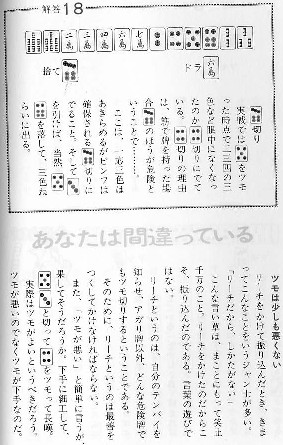 解答18
捨て
ドラ
切り
実戦では をツモ
った時点で二三四の三
色など眼中になくなっ
たのか 切りにでて
いる。 切りの理由
は、筋で牌を持った場
合 のほうが危険と
いうことで……
ここは、一応三色は
あきらめるがピンフは
確保される 切りに
でること。そして
を引けば、当然
を落して、三色ね
らいに出る。
あなたは間違っている
ツモは少しも悪くない
リーチをかけて振り込んだとき、きま
ってこんなことをいうジャン士が多い。
「リーチだから、しかたがない」
こんな言い草は、まことにもって笑止
千万のこと。リーチをかけたのだからこ
そ、振り込んだのである。言葉の遊びで
はない。
リーチというのは、自分のテンパイを
知らせ、アガリ牌以外、どんな危険牌で
もツモ切りするということである。
そのために、リーチというのは最善を
つくしてかけなければならない。
また、「ツモが悪い」と簡単に言うが、
果してそうだろうか。下手に細工して、
と切って、 をツモって嘆く。
実際はツモがよいというべきだろう。
ツモが悪いのでなくツモが下手なのだ。